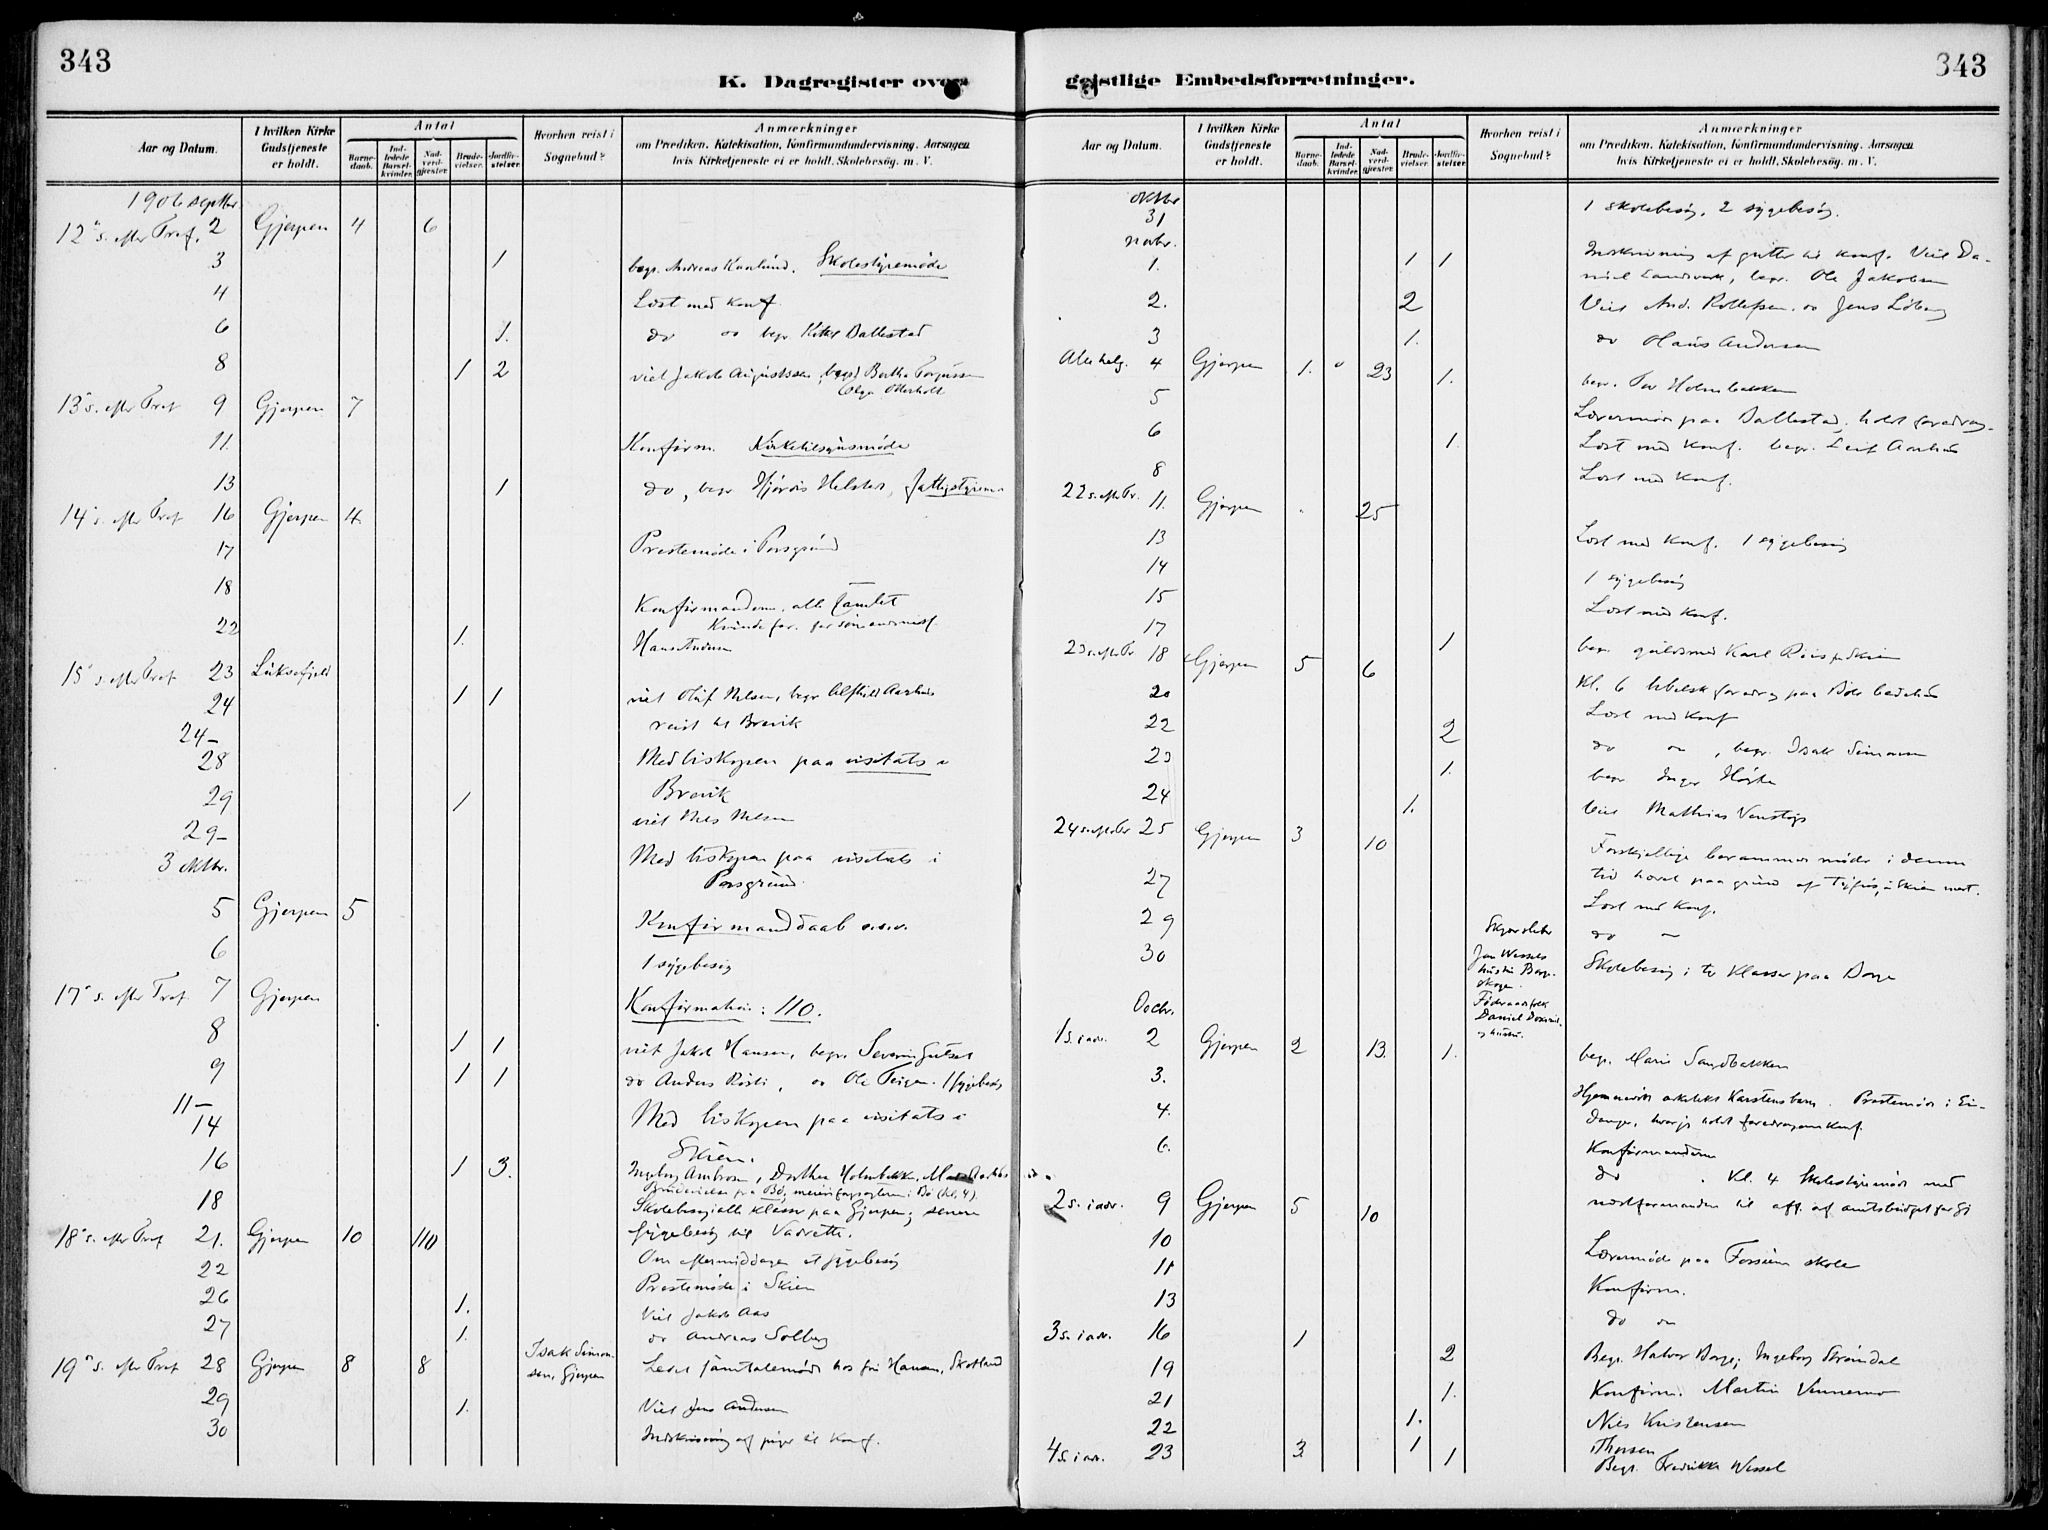 343
K. Dagregister over
Aar og Datum.
I hvilken Kirke Gudstjeneste er holdt.
Antal
Barnedaab.
Indledede Barselkvinder.
Nadverdgjæster.
Brudevielser.
Jordfæstelser.
Hvorhen reist i Sognebud?
Anmærkninger
om Prædiken. Katekisation, Konfirmandundervisning. Aarsagen
hvis Kirketjeneste ei er holdt. Skolebesøg. m. V.
1906 septbr.
12' s. efter Tref. 2 Gjerpen 4 6
3 1 begr. Andreas Kaalund. Skolestyremøde
4 Læst med Konf.
6 1. do oo begr Ballestad
8 1 2 viet Jakob Augustsen, begr Bertha
Olga Otterholt
13' s. efter Tref 9 Gjerpen 7
11. Konfirm. Kirketilsynsmøde
13 1 do, begr Hjørdis Helster,
14' s. efter Tref 16 Gjerpen 4
17 Prestemøde i Porsgrund
18 Konfirmanderne, alle samlet
22 1. Kvindefor. for sømandsmis.
Hans Andersen
15' s. efter Tref 23 Luksefjeld
24 1 1 viet Oluf Nelsen, begr Aarhus
24– reist til Brevik
28 Med biskopen paa visitats i
29 1 Brevik
viet Nels Nelsen
29–
3 oktbr. Med biskopen paa visitats i
Porsgrund.
5 Gjerpen 5 Konfirmanddaab o.s.v.
6 1 sygebesøg
17' s. efter Tref 7 Gjerpen Konfirmation: 110.
8 1 1 viet Jakob Hansen, begr. Severin
9 1 1 do Anders, oo Ole Teigen. 1 sygebesøg
11–
14 Med biskopen paa visitats i
Skien.
16 1 3. Ingeborg Ambrosen, Dorthea Holmbakken,
18 Skolebesøg i alle klasser paa Gjerpen; senere
18' s. efter Tref 21. Gjerpen 10 110 Sygebesøg til
22 Om eftermiddagen et sygebesøg
26 1. Prestemøde i Skien
Viet Jakob Aas
27 1. do Andreas Solberg
19' s. efter Tref 28 Gjerpen 8 8 Isak Simonsen, Gjerpen Ledet samtalemøde hos fru Hansen, Skotland
29 1. Viet Jens Andersen
30 Indskrivning af piger til Konf.
343
geistlige Embedsforretninger.
Aar og Datum.
I hvilken Kirke Gudstjeneste er holdt.
Antal
Barnedaab.
Indledede Barselkvinder.
Nadverdgjæster.
Brudevielser.
Jordfæstelser.
Hvorhen reist i Sognebud?
Anmærkninger
om Prædiken. Katekisation, Konfirmandundervisning. Aarsagen
hvis Kirketjeneste ei er holdt. Skolebesøg. m. V.
oktbr
31 1 skolebesøg, 2 sygebesøg.
novbr.
1. 1 1 Indskrivning af gutter til Konf. Viet Da-
niel Landverk, begr. Ole Jakobsen
2. 2 Viet And. Rollefsen oo Jens Löberg
3 1. do Hans Andersen
Alle helg. 4 Gjerpen 1. 23 1. begr. Per Holmbakken
5 Lærermøde paa Ballestad, holdt foredrag.
6 1. Læst med Konf. begr. Leif Aarhus
8 Læst med Konf.
22 s. efter Tr. 11. Gjerpen 25
13 Læst med Konf. 1 sygebesøg
14 1 sygebesøg
15 Læst med Konf.
17 1
23 s. efter Tr. 18 Gjerpen 5 6 begr. guldsmed Karl Riis fra Skien
20 Kl. 6 bibelsk foredrag paa Bøle bedehus
22 2 Læst med Konf
23 1. do oo, begr. Isak Simonsen
begr Inger
24 1. Viet Mathias Venstøp
24 s. efter Tr 25 Gjerpen 3 10 Forskjellige berammede møder i denne
27 tid hævet paa grund af tyfus i Skien
29 Læst med Konf.
do –
30 Jon Wessels hustru Borgeskogen. Skolebesøg i to klasser paa Borge
Föderaadsfolk Daniel og hustru.
Decbr.
1 s. i adv. 2 Gjerpen 2 13. 1. begr. Marie Sandbakken
3.
4. Hjemmevidt arkitekt Karstens barn. Prestemøde i Ei-
danger, hvor jeg holdt foredrag om Konf.
6. Konfirmanderne
do. Kl. 4 Skolestyremøde med
2 s. i adv. 9 Gjerpen 5 10 af amtsbudget
10
11 Lærermøde paa Fossum skole
13 Konfirm.
do oo
3 s. i adv. 16 1
19 2 Begr. Halvor Borge; Ingeborg Strömdal
21 1. Konfirm. Martin Vennemo
22 1. Nils Kristensen
4 s. i adv. 23 3 1 1 Thorsen
Begr. Fredrikke Wessel